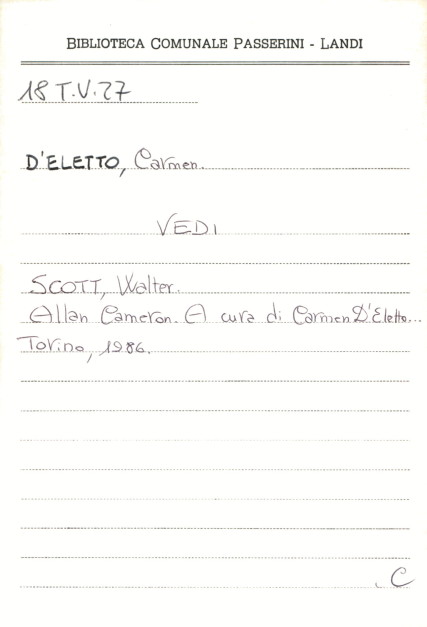 BIBLIOTECA COMUNALE PASSERINI - LANDI
18 T.V.27
D'ELETTO, Carmen.
VEDI
SCOTT, Walter.
Allan Cameron. A cura di Carmen D'Eletto...
Torino, 1986.
C